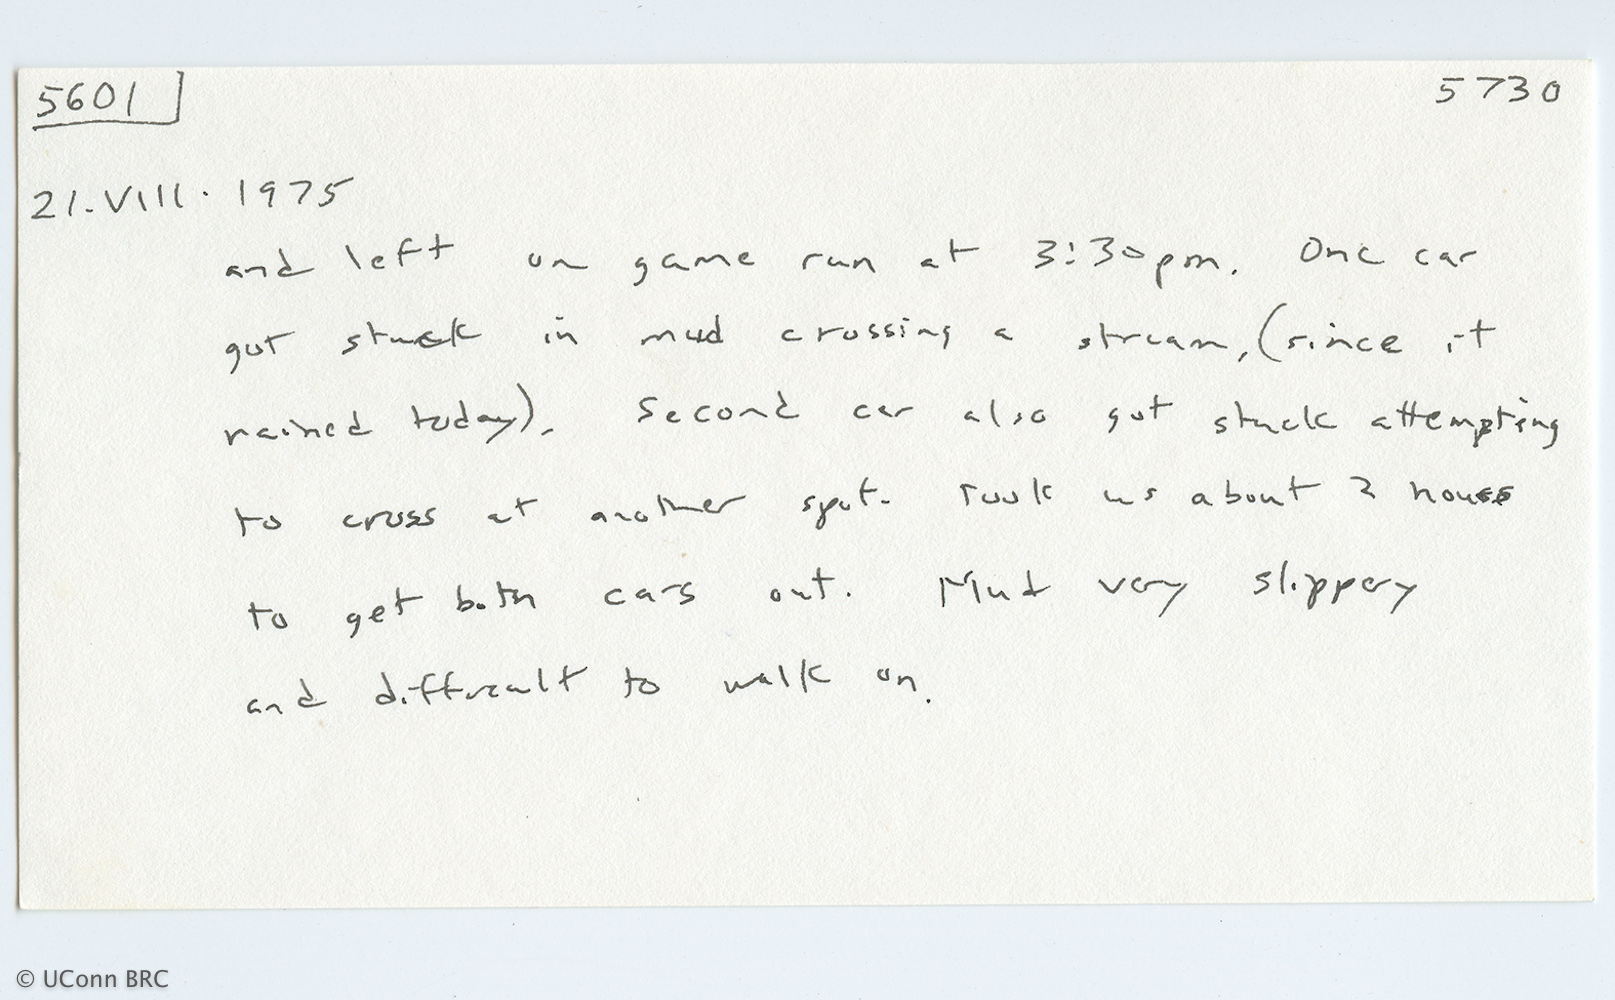 5601 5730
21.VIII.1975
and left on game run at 3:30pm. One car
got stuck in mud crossing a stream, (since it
rained today). Second car also got stuck attempting
to cross at another spot. Took us about 2 hours
to get both cars out. Mud very slippery
and difficult to walk on.
© UConn BRC